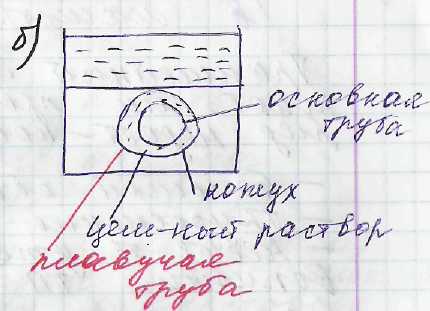 б)
основная
труба
кожух
цем-ный раствор
плавучая
труба